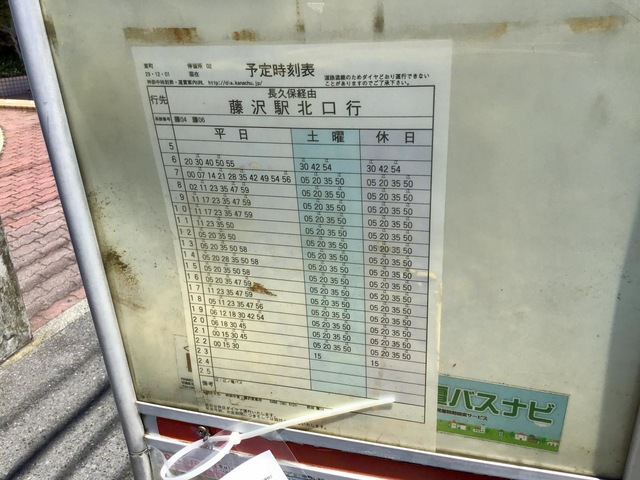 予定時刻表
停留所 02
29・12・01 現在
道路混雑のためダイヤどおり運行できない
ことがありますのでご了承下さい。
行先
長久保経由
藤沢駅北口行
系統番号 藤04 藤06
平日 土曜 休日
5
6 20 30 40 50 55 30 42 54 30 42 54
7 00 07 14 21 28 35 42 49 54 56 05 20 35 50 05 20 35 50
8 02 11 23 35 47 59 05 20 35 50 05 20 35 50
9 11 17 23 35 47 59 05 20 35 50 05 20 35 50
10 11 17 23 35 47 59 05 20 35 50 05 20 35 50
11 11 23 35 50 05 20 35 50 05 20 35 50
12 05 20 35 50 05 20 35 50 05 20 35 50
13 05 20 35 50 58 05 20 35 50 05 20 35 50
14 05 20 28 35 50 58 05 20 35 50 05 20 35 50
15 05 20 35 50 58 05 20 35 50 05 20 35 50
16 05 20 35 47 59 05 20 35 50 05 20 35 50
17 11 23 35 47 59 05 20 35 50 05 20 35 50
18 05 11 23 35 47 56 05 20 35 50 05 20 35 50
19 06 12 18 30 42 54 05 20 35 50 05 20 35 50
20 06 18 30 45 05 20 35 50 05 20 35 50
21 00 15 30 45 05 20 35 50 05 20 35 50
22 00 15 30 05 20 35 50 05 20 35 50
23 15 15
24
25
備考
バスナビ